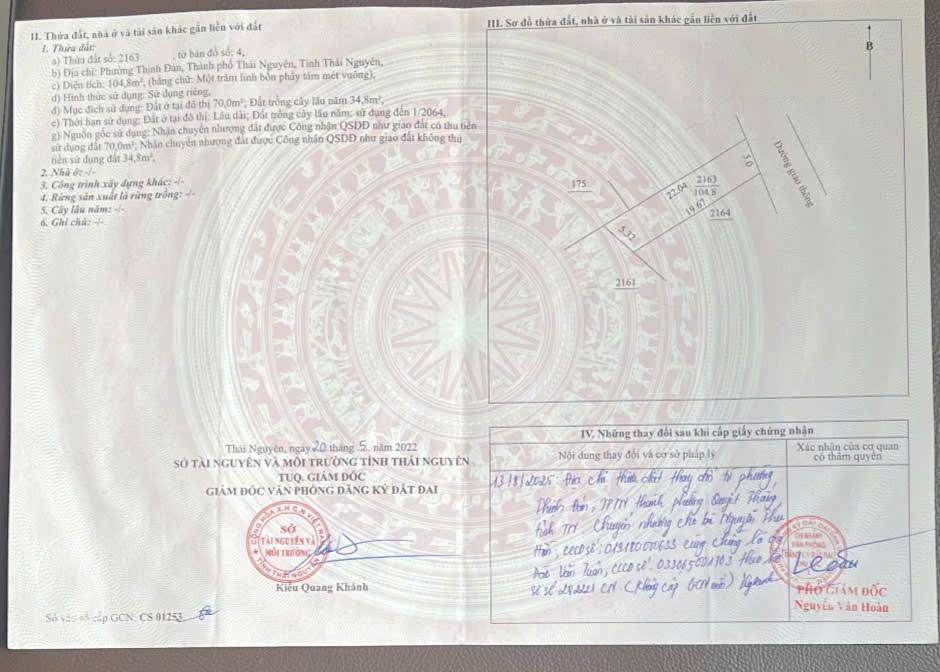 II. Thửa đất, nhà ở và tài sản khác gắn liền với đất
1. Thửa đất:
a) Thửa đất số: 2163 , tờ bản đồ số: 4,
b) Địa chỉ: Phường Thịnh Đán, Thành phố Thái Nguyên, Tỉnh Thái Nguyên,
c) Diện tích: 104,8m², (bằng chữ: Một trăm linh bốn phẩy tám mét vuông),
d) Hình thức sử dụng: Sử dụng riêng,
đ) Mục đích sử dụng: Đất ở tại đô thị 70,0m²; Đất trồng cây lâu năm 34,8m²,
e) Thời hạn sử dụng: Đất ở tại đô thị: Lâu dài; Đất trồng cây lâu năm: sử dụng đến 1/2064,
g) Nguồn gốc sử dụng: Nhận chuyển nhượng đất được Công nhận QSDĐ như giao đất có thu tiền
sử dụng đất 70,0m²; Nhận chuyển nhượng đất được Công nhận QSDĐ như giao đất không thu
tiền sử dụng đất 34,8m²,
2. Nhà ở: -/-
3. Công trình xây dựng khác: -/-
4. Rừng sản xuất là rừng trồng: -/-
5. Cây lâu năm: -/-
6. Ghi chú: -/-
Thái Nguyên, ngày 20 tháng 5 năm 2022
SỞ TÀI NGUYÊN VÀ MÔI TRƯỜNG TỈNH THÁI NGUYÊN
TUQ. GIÁM ĐỐC
GIÁM ĐỐC VĂN PHÒNG ĐĂNG KÝ ĐẤT ĐAI
SỞ
TÀI NGUYÊN VÀ
MÔI TRƯỜNG
Kiều Quang Khánh
Số vào sổ cấp GCN: CS 01253
III. Sơ đồ thửa đất, nhà ở và tài sản khác gắn liền với đất
B
Đường giao thông
5.0
175
22.04
2163
104.8
19.67
2164
5.32
2161
IV. Những thay đổi sau khi cấp giấy chứng nhận
Nội dung thay đổi và cơ sở pháp lý
Xác nhận của cơ quan
có thẩm quyền
13/8/2025 Địa chỉ thửa đất thay đổi từ phường
Thịnh Đán, TPTN thành phường Quyết Thắng,
tỉnh TN Chuyển nhượng cho bà Nguyễn Thu
CCCD số: cùng chồng là ông
Văn Tuấn, CCCD số: theo hồ
sơ số CN (Không cấp GCN mới)
PHÓ GIÁM ĐỐC
Nguyễn Văn Hoàn